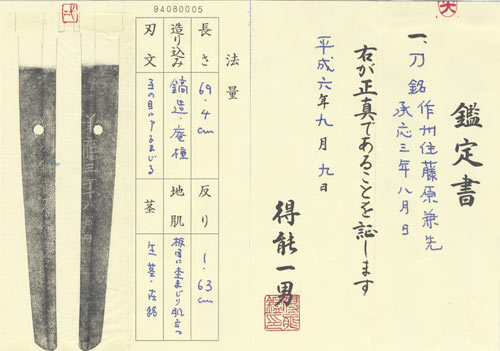 鑑定書
一、刀 銘 作州住藤原兼先
承応三年八月日
右が正真であることを証します
平成六年九月九日
得能一男
94080005
法量
長さ 69.4cm
反り 1.63cm
造り込み 鎬造庵棟
地肌 板目に杢まじり肌立つ
刃文
茎 生茎・在銘